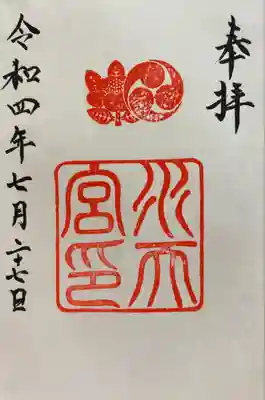 奉拝
水天
宮印
令和四年七月二十七日